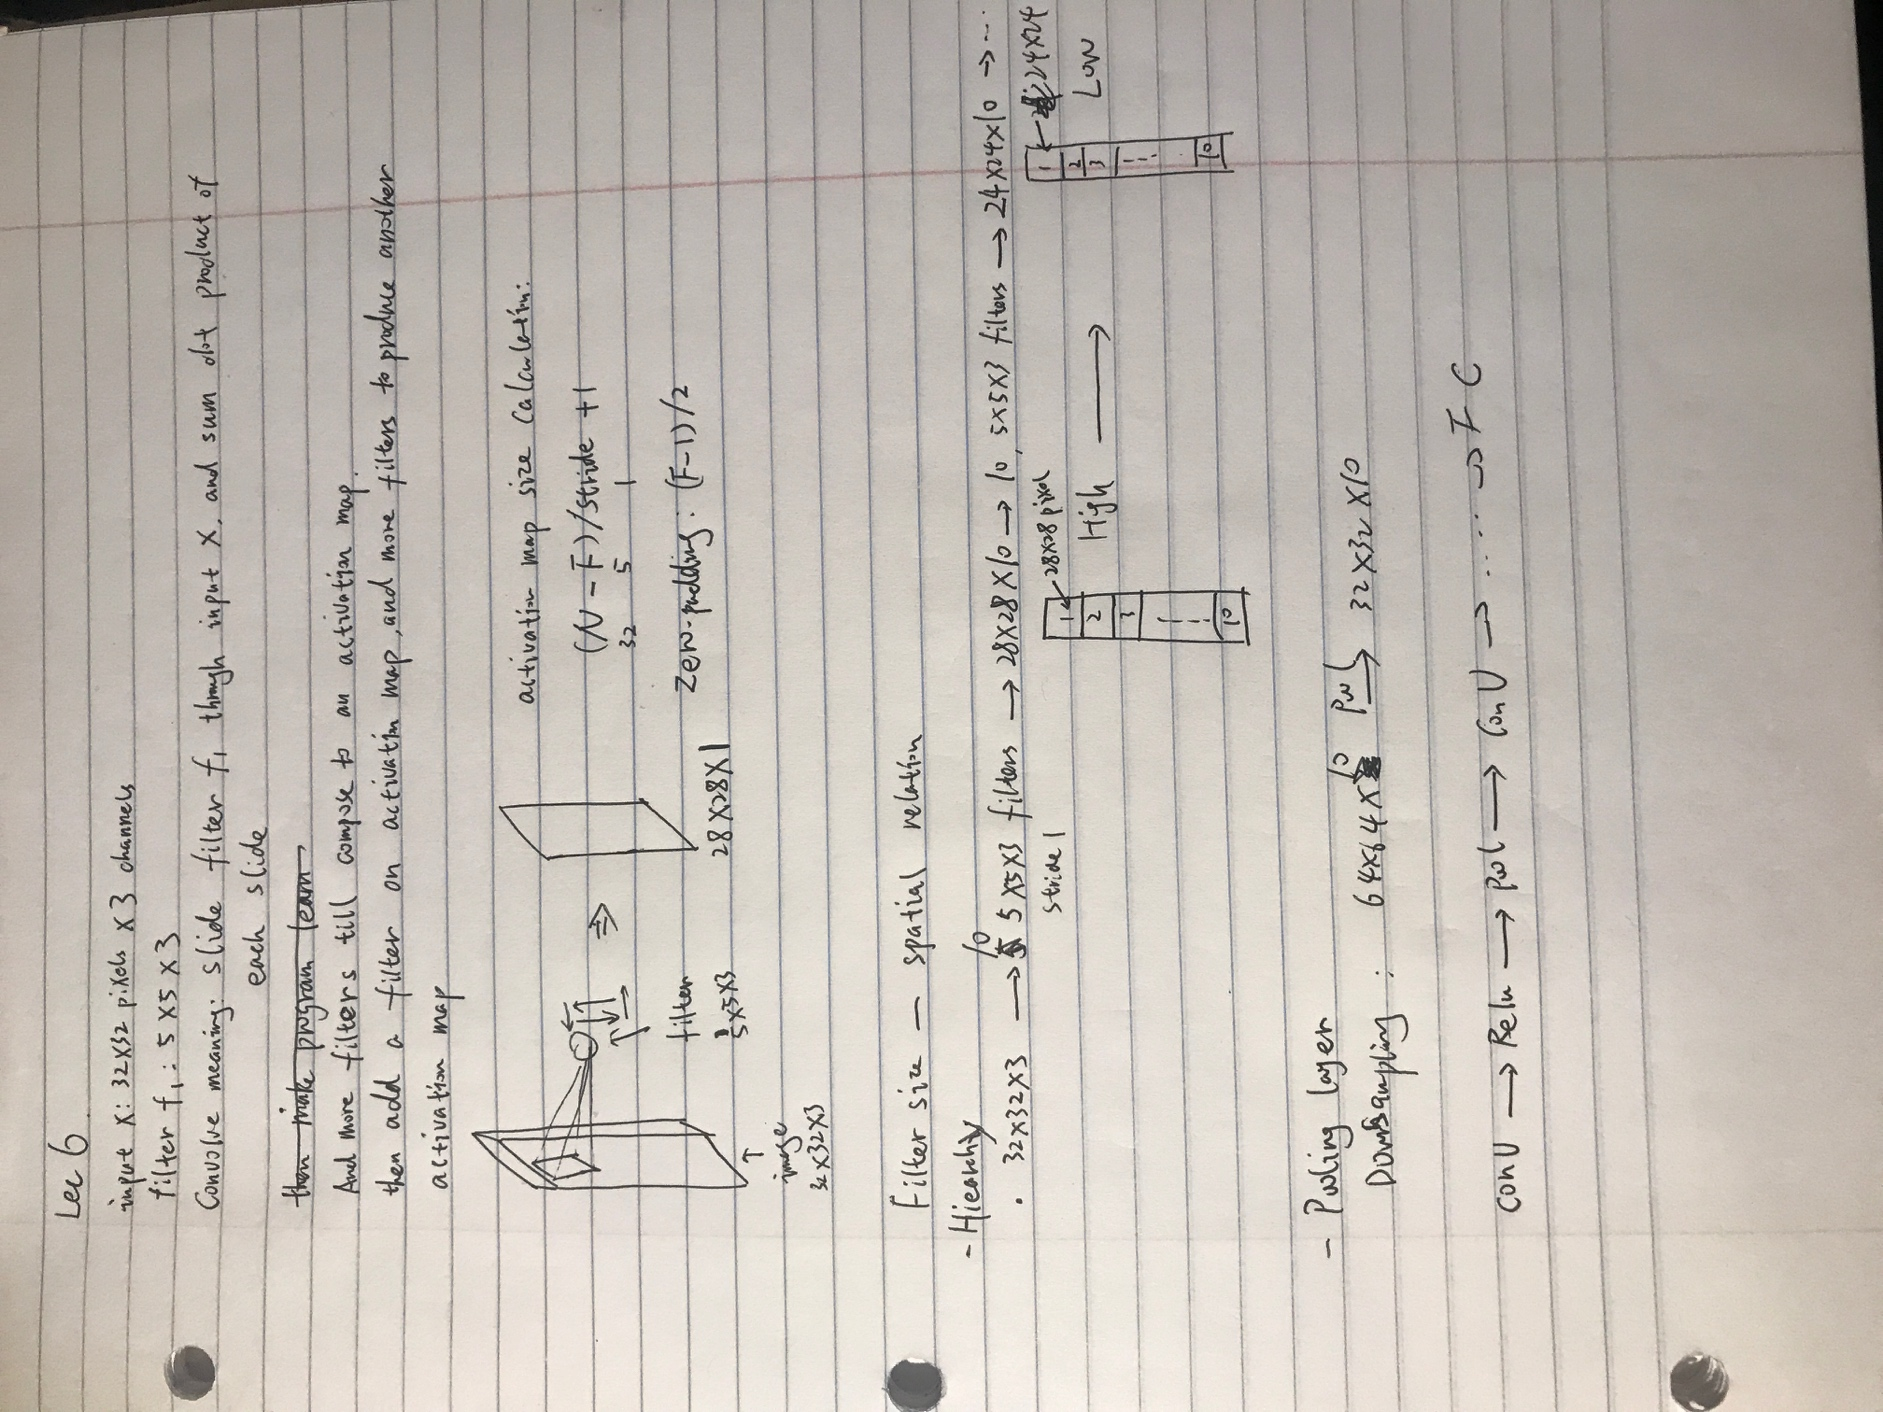 Lec 6
input x: 32x32 pixels x 3 channels
filter f1: 5x5x3
Convolve meaning: slide filter f1 through input x, and sum dot product of
each slide
then make program learn
And more filters till compose to an activation map.
then add a filter on activation map, and more filters to produce another
activation map
image
32x32x3
filter
5x5x3
⇒
28x28x1
activation map size calculation:
(N-F)/stride +1
32 5 1
Zero-padding: (F-1)/2
Filter size — spatial relation
- Hierarchy
. 32x32x3 → 10 5x5x3 filters → 28x28x10 → 10, 5x5x3 filters → 24x24x10 → ...
stride 1
1 ← 28x28 pixel
2
3
10
High →
1 ← 24x24
2
3
10
Low
- Pooling layer
Downsampling: 64x64x10 Pool → 32x32x10
Conv → Relu → Pool → Conv → ..... → FC